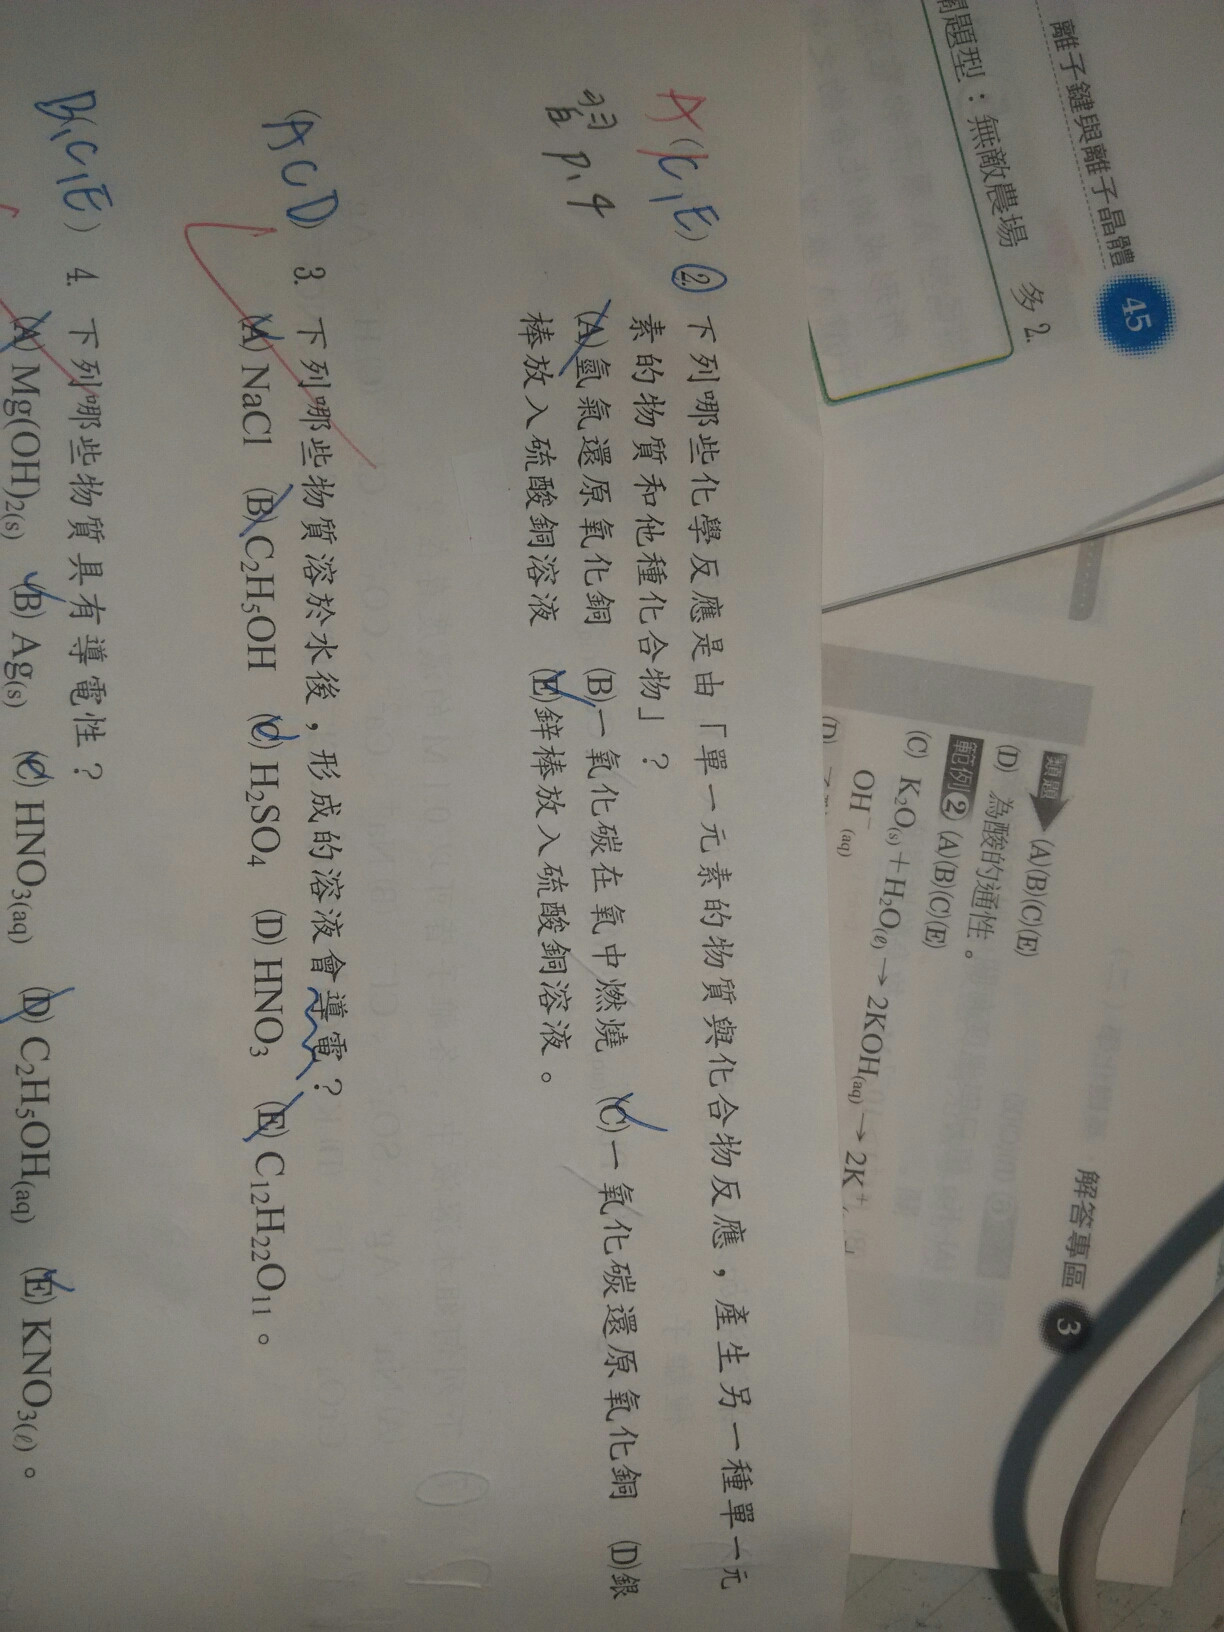 離子鍵與離子晶體 45
題型：無敵農場 多2.
解答專區 3
類題 (A)(B)(C)(E)
(D) 為酸的通性。
範例2 (A)(B)(C)(E)
(C) K₂O(s)＋H₂O(ℓ)→2KOH(aq)→2K⁺
OH⁻(aq)
(D)
A(C,E) 2. 下列哪些化學反應是由「單一元素的物質與化合物反應，產生另一種單一元
素的物質和他種化合物」？
習 P.4 (A)氫氣還原氧化銅 (B)一氧化碳在氧中燃燒 (C)一氧化碳還原氧化銅 (D)銀
棒放入硫酸銅溶液 (E)鋅棒放入硫酸銅溶液。
(ACD) 3. 下列哪些物質溶於水後，形成的溶液會導電？
(A) NaCl (B) C₂H₅OH (C) H₂SO₄ (D) HNO₃ (E) C₁₂H₂₂O₁₁。
B,C,E) 4. 下列哪些物質具有導電性？
(A) Mg(OH)₂(s) (B) Ag(s) (C) HNO₃(aq) (D) C₂H₅OH(aq) (E) KNO₃(ℓ)。